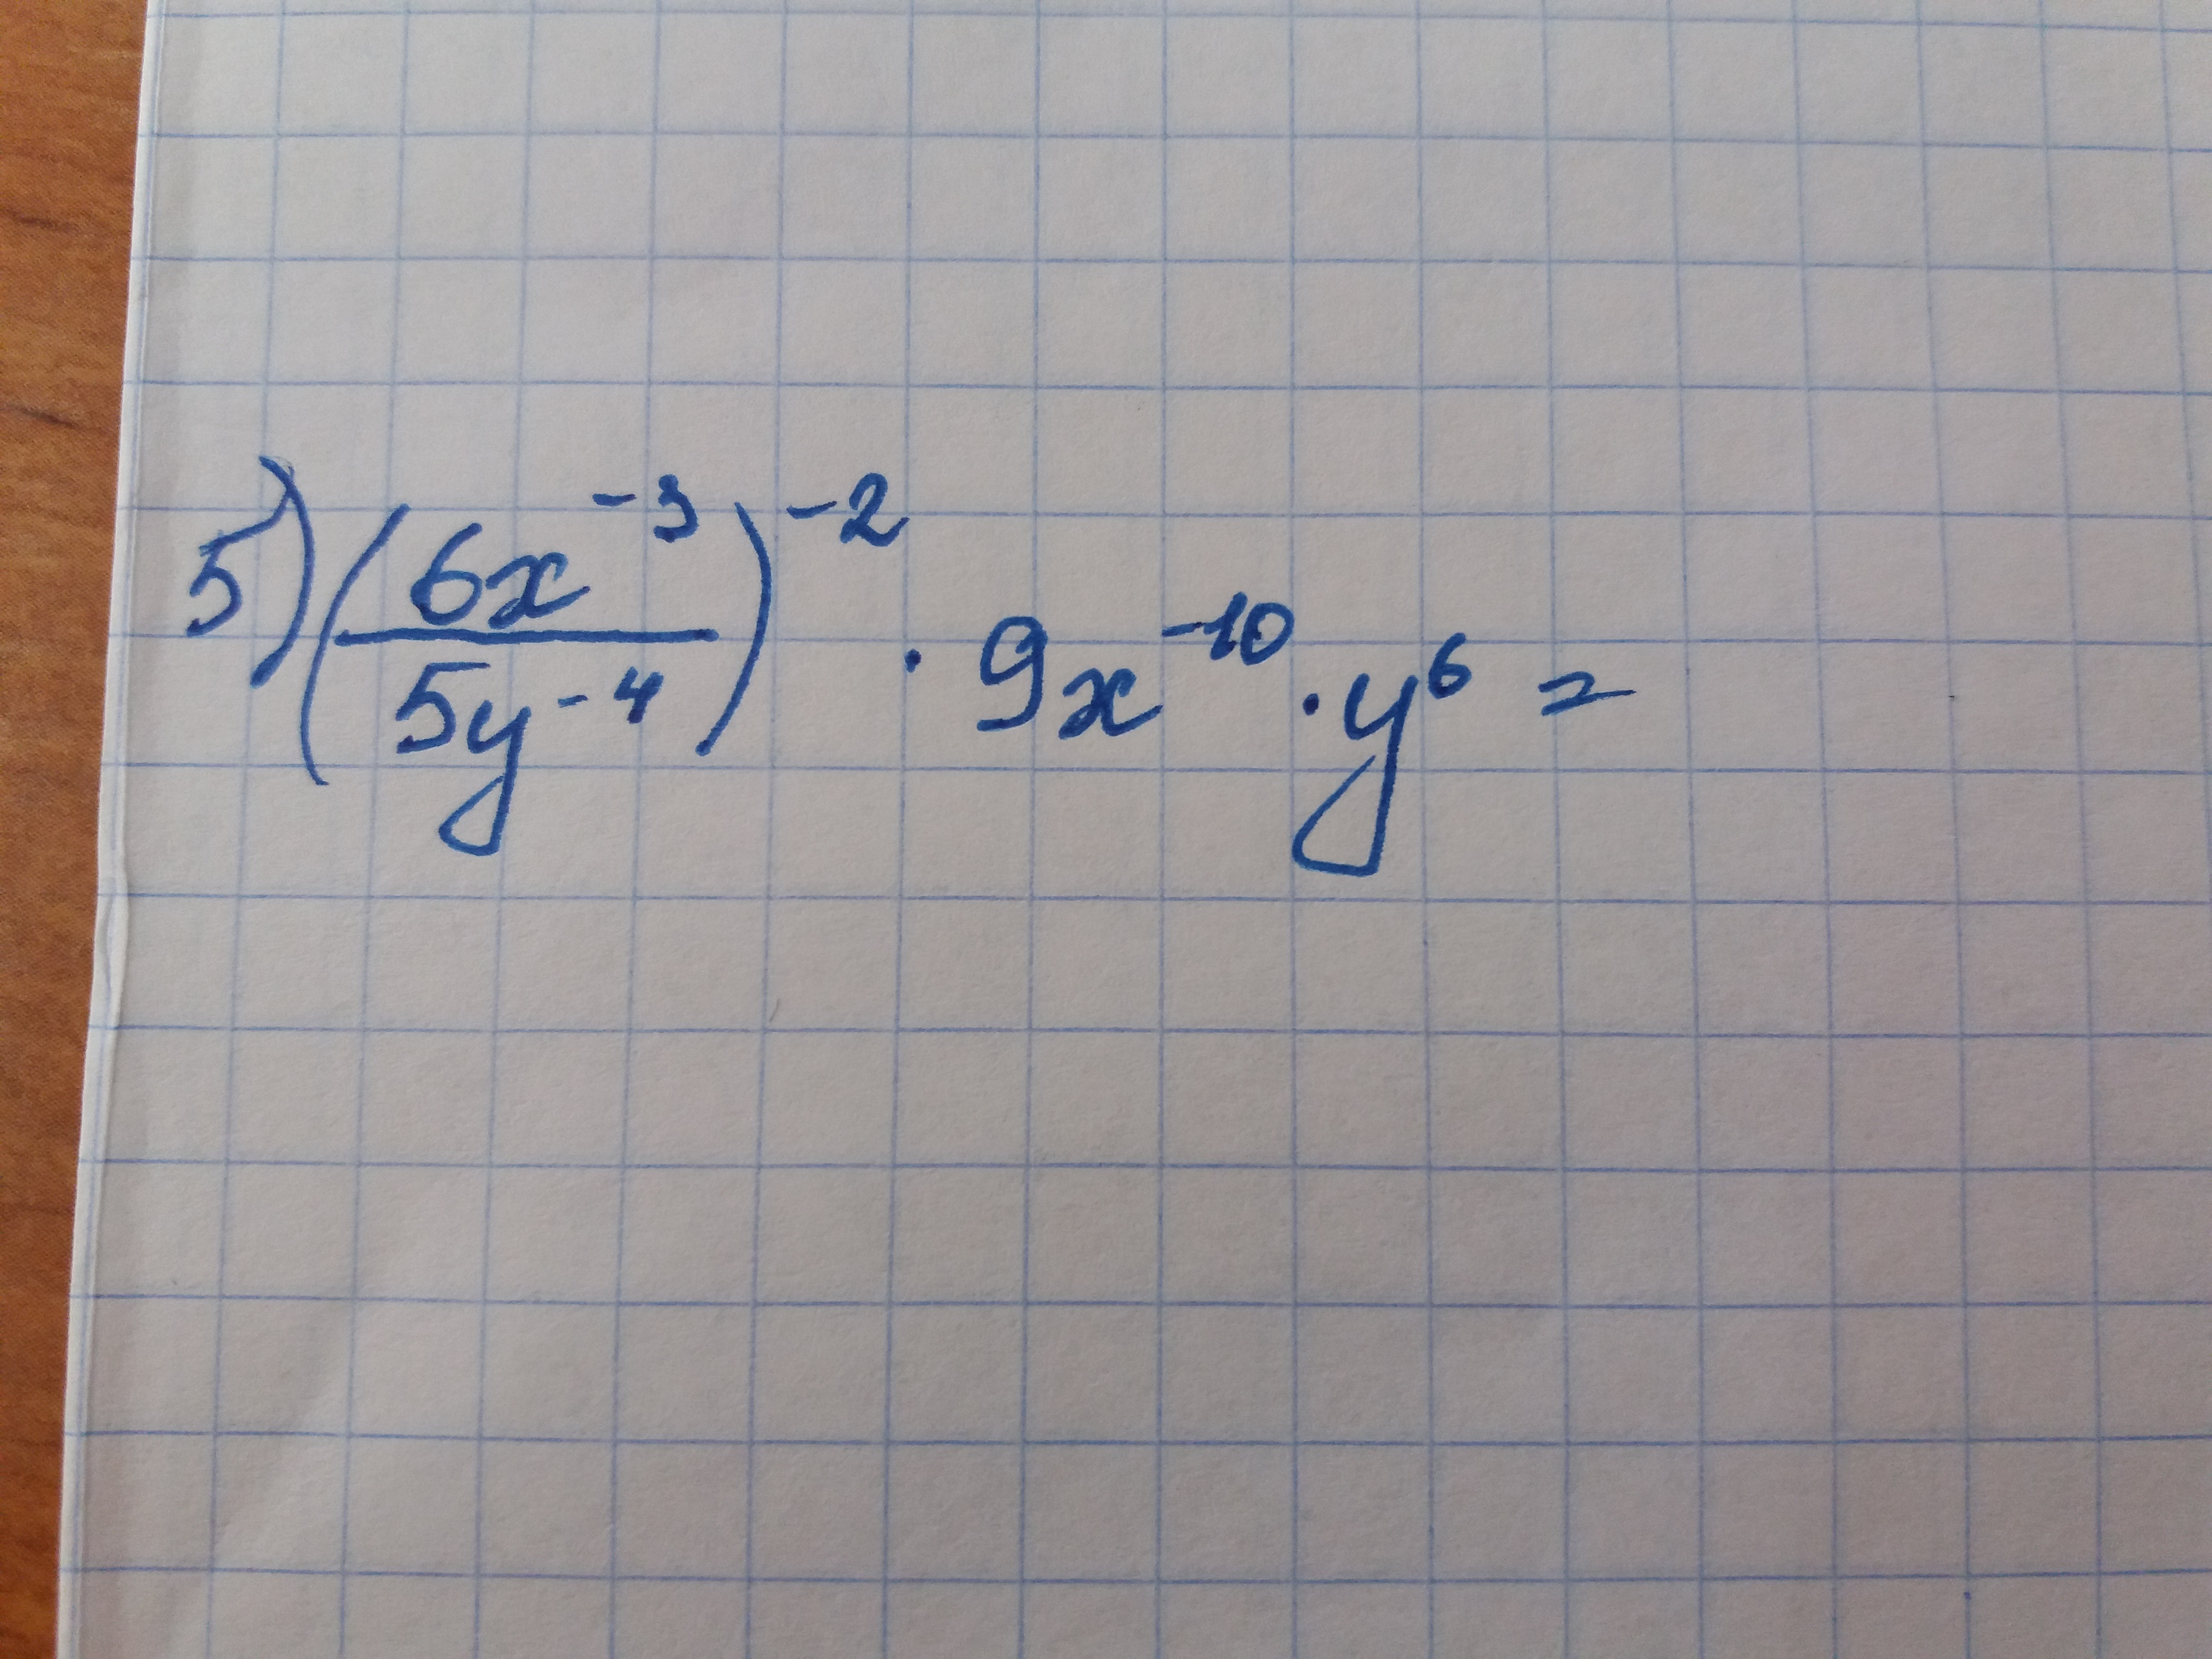 5) (6x⁻³/5y⁻⁴)⁻² · 9x⁻¹⁰ · y⁶ =